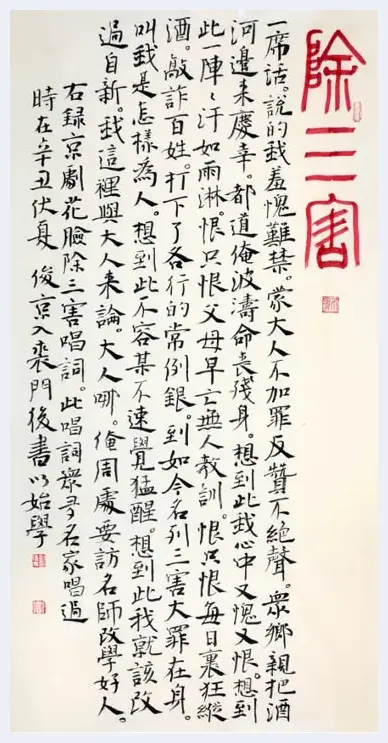 除三害
一席話。說的我羞愧難禁。蒙大人不加罪反贊不絕聲。衆鄉親把酒
河邊来慶幸。都道俺波濤命喪殘身。想到此我心中又愧又恨。想到
此一陣〻汗如雨淋。恨只恨父母早亡無人教訓。恨只恨每日裏狂縱
酒。敲詐百姓。打下了各行的常例銀。到如今名列三害大罪在身。
叫我是怎樣為人。想到此不容某不速覺猛醒。想到此我就該改
過自新。我這裡與大人来論。大人哪。俺周處要訪名師改學好人。
右録京劇花臉除三害唱詞。此唱詞衆多名家唱過
時在辛丑伏夏 俊京入裘門後書以始學